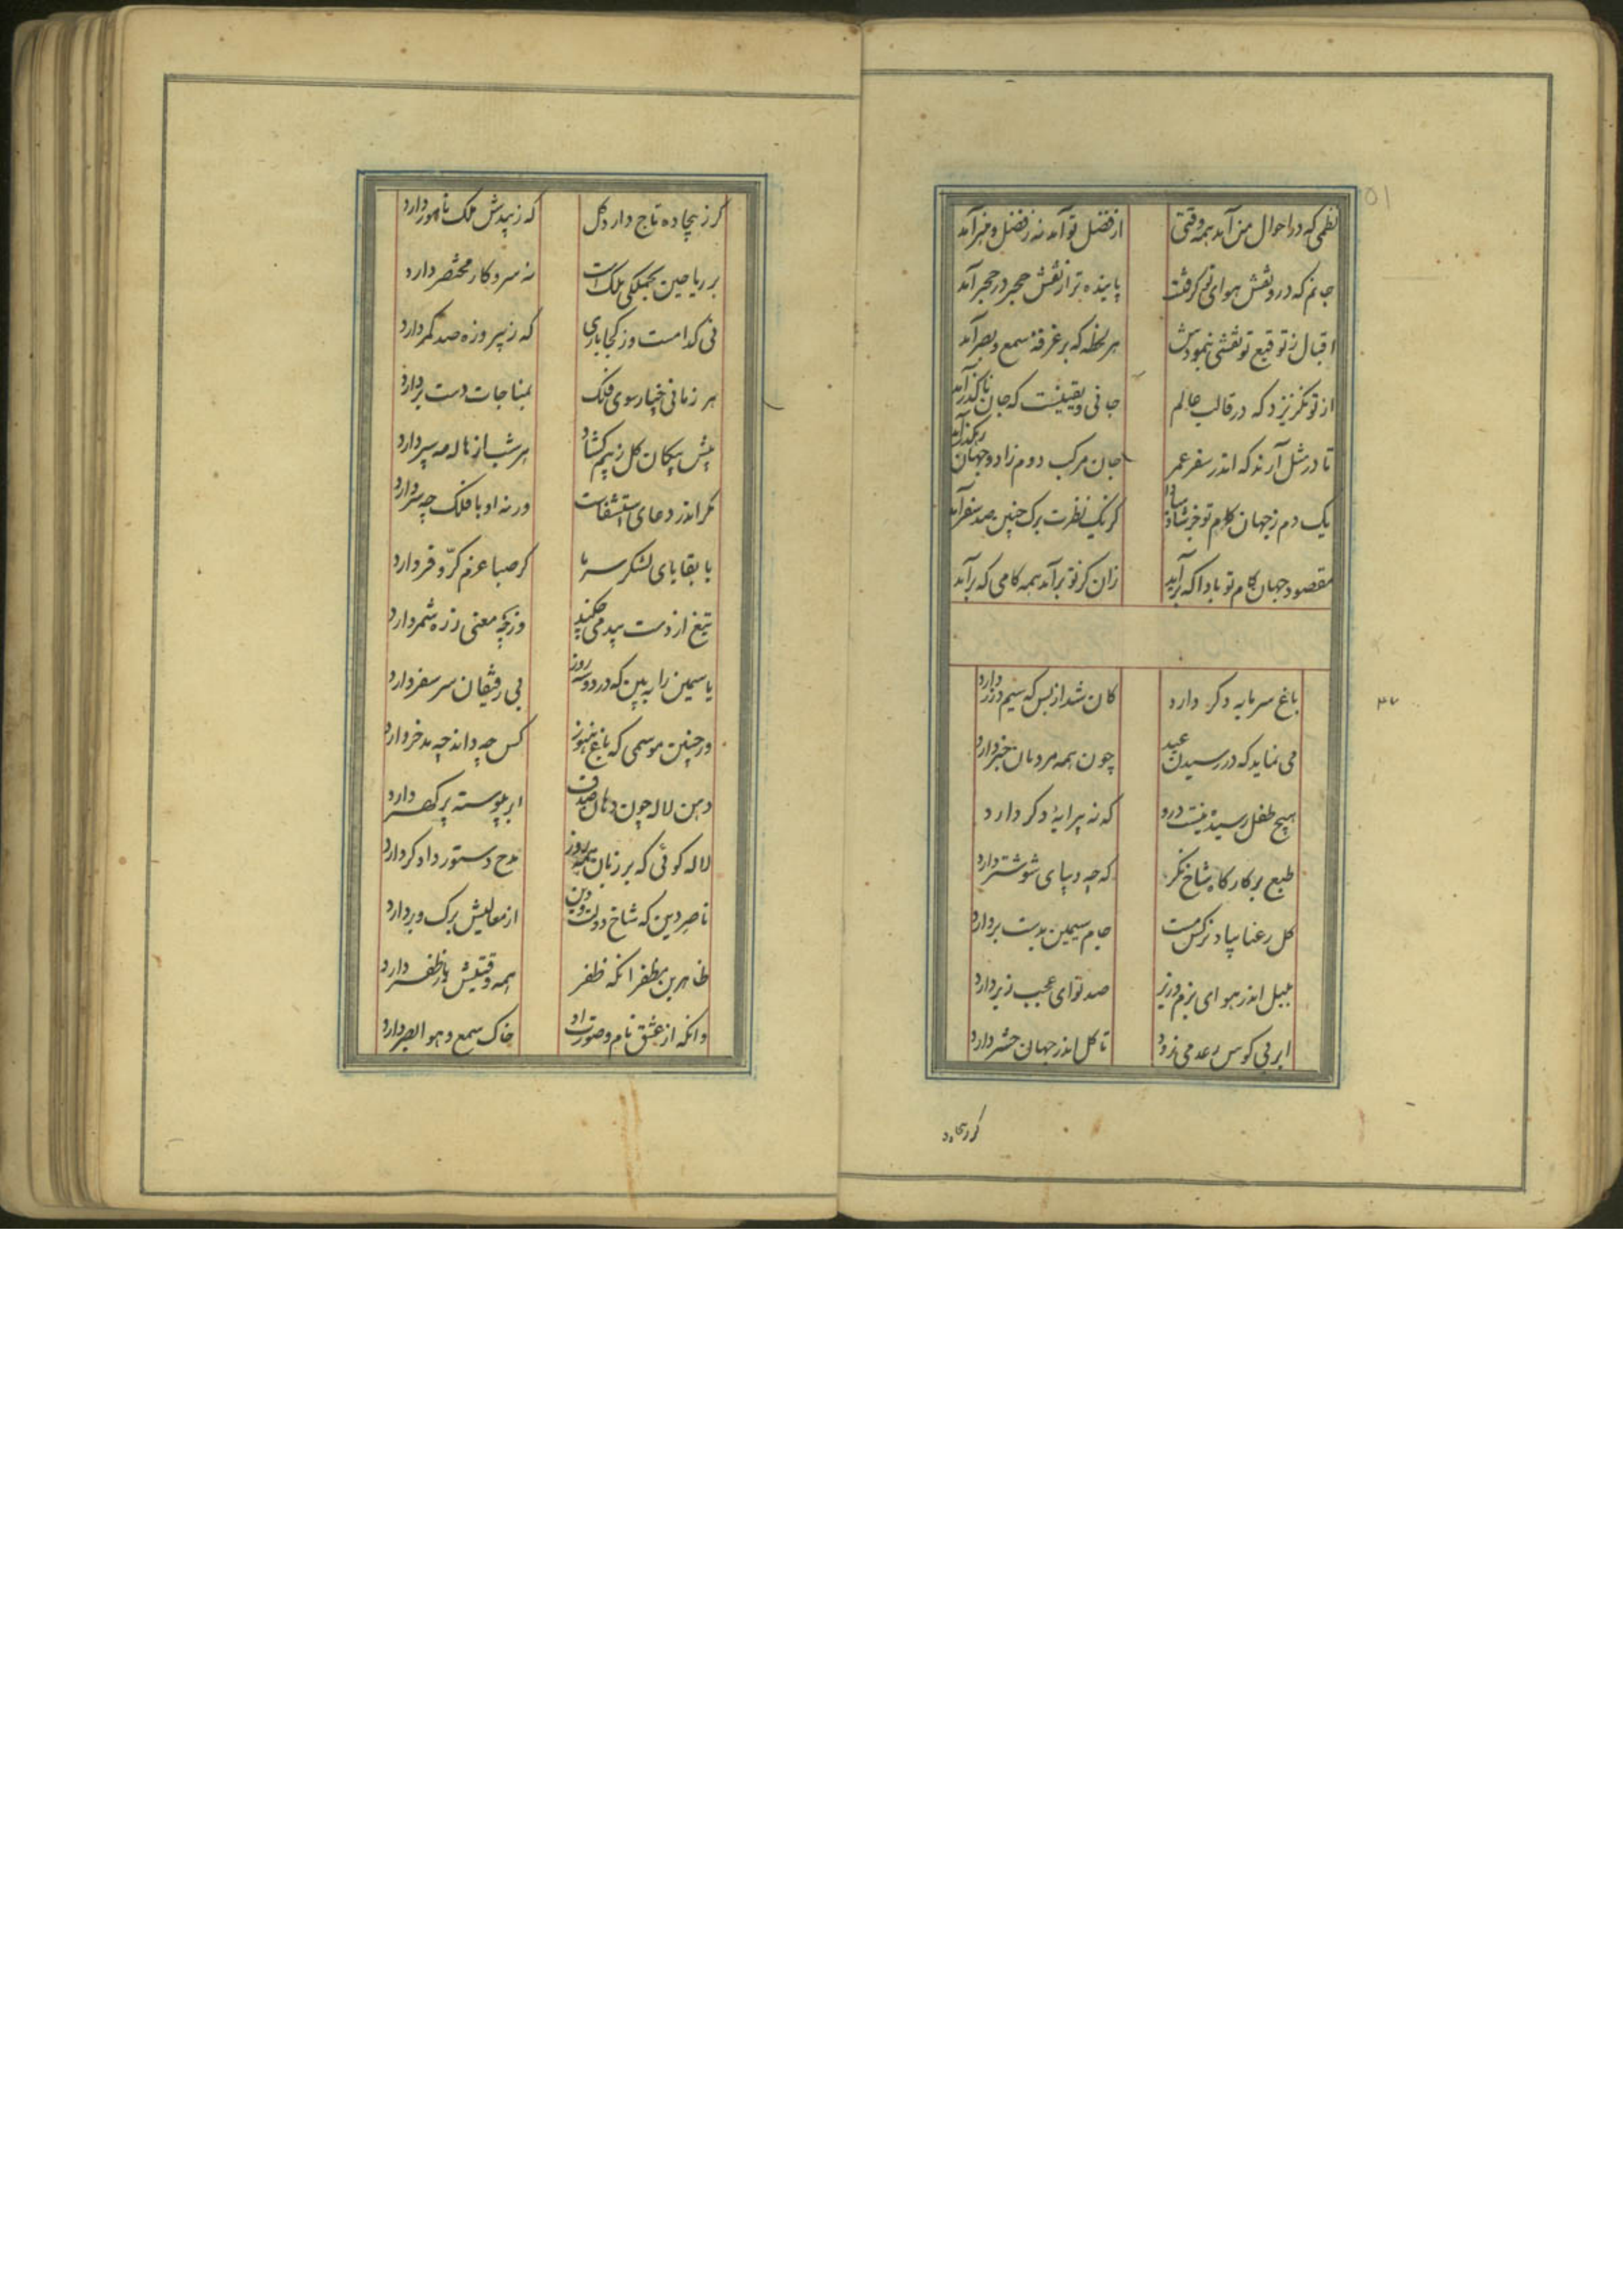 نظمی که در احوال من آمد همه وقتی از فضل تو آمد نه ز فضل و خبر آمد
جانم که درو نقش هوای تو گرفتست پاینده تر از نقش حجر در حجر آمد
اقبال ز توقیع تو نقشی بنمودش هر لحظه که بر غرفهٔ سمع و بصر آمد
از تو نگریزد که در قالب عالم جانی و یقینست که جان ناگذر آمد
تا در مثل آرند که اندر سفر عمر جان مرکب و دم زاد و جهان رهگذر آمد
یک دم ز جهان کام تو جز شاد مبادا کز یک نظرت برگ چنین صد سفر آمد
مقصود جهان کام تو بادا که برآید زان کز تو برآمد همه کامی که برآمد
باغ سرمایه دگر دارد کان شد از بس که سیم و زر دارد
می نماید که در رسیدن عید چون همه مردمان خبر دارد
هیچ طفل رسیده نیست درو که نه پیرایهٔ دگر دارد
طبع بر کارگاه شاخ نگر که چه دیبای شوشتر دارد
گل رعنا بیاد نرگس مست جام سیمین بدست بر دارد
بلبل اندر هوای بزم وزیر صد نوای عجب ز بر دارد
ابر بی کوس رعد می نرود تا گل اندر جهان حشر دارد
۳۷
گر ز بیجاده تاج دارد گل که ز بیدش ملک نامور دارد
بر ریاحین بجملگی ملک است نه سر و کار مختصر دارد
نی کدامست وز کجا باری که ز پیروزه صد کمر دارد
هر زمانی چنار سوی فلک بمناجات دست بر دارد
پیش پیکان گل ز بیم گشاد هر شب از هاله مه سپر دارد
مگر اندر دعای استسقاست ورنه او با فلک چه سر دارد
با بقایای لشکر سرما گر صبا عزم کرّ و فر دارد
تیغ از دست بید می چکند وز چه معنی زره شمر دارد
یاسمین را ببین که در دو سه روز بی رفیقان سر سفر دارد
در چنین موسمی که باغ هنوز کس چه داند چه مدخر دارد
دهن لاله چون دهان صدف ابر پیوسته پر گهر دارد
لاله گوئی که بر زبان همه روز مدح دستور دادگر دارد
ناصر دین که شاخ دولت و دین از معالیش برگ و بر دارد
طاهر بن مظفر انکه ظفر همه وقتیش بر ظفر دارد
وانکه از عشق نام و صورت او خاک سمع و هوا بصر دارد